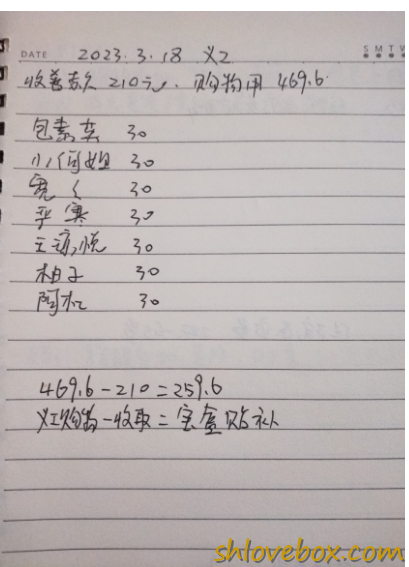 DATE 2023.3.18 义工
S M T W
收善款 210元, 购物用 469.6
包素英 30
小何姐 30
30
平寞 30
王斌悦 30
柚子 30
阿杜 30
469.6-210=259.6
义工购物-收取=宝盒贴补
shlovebox.com